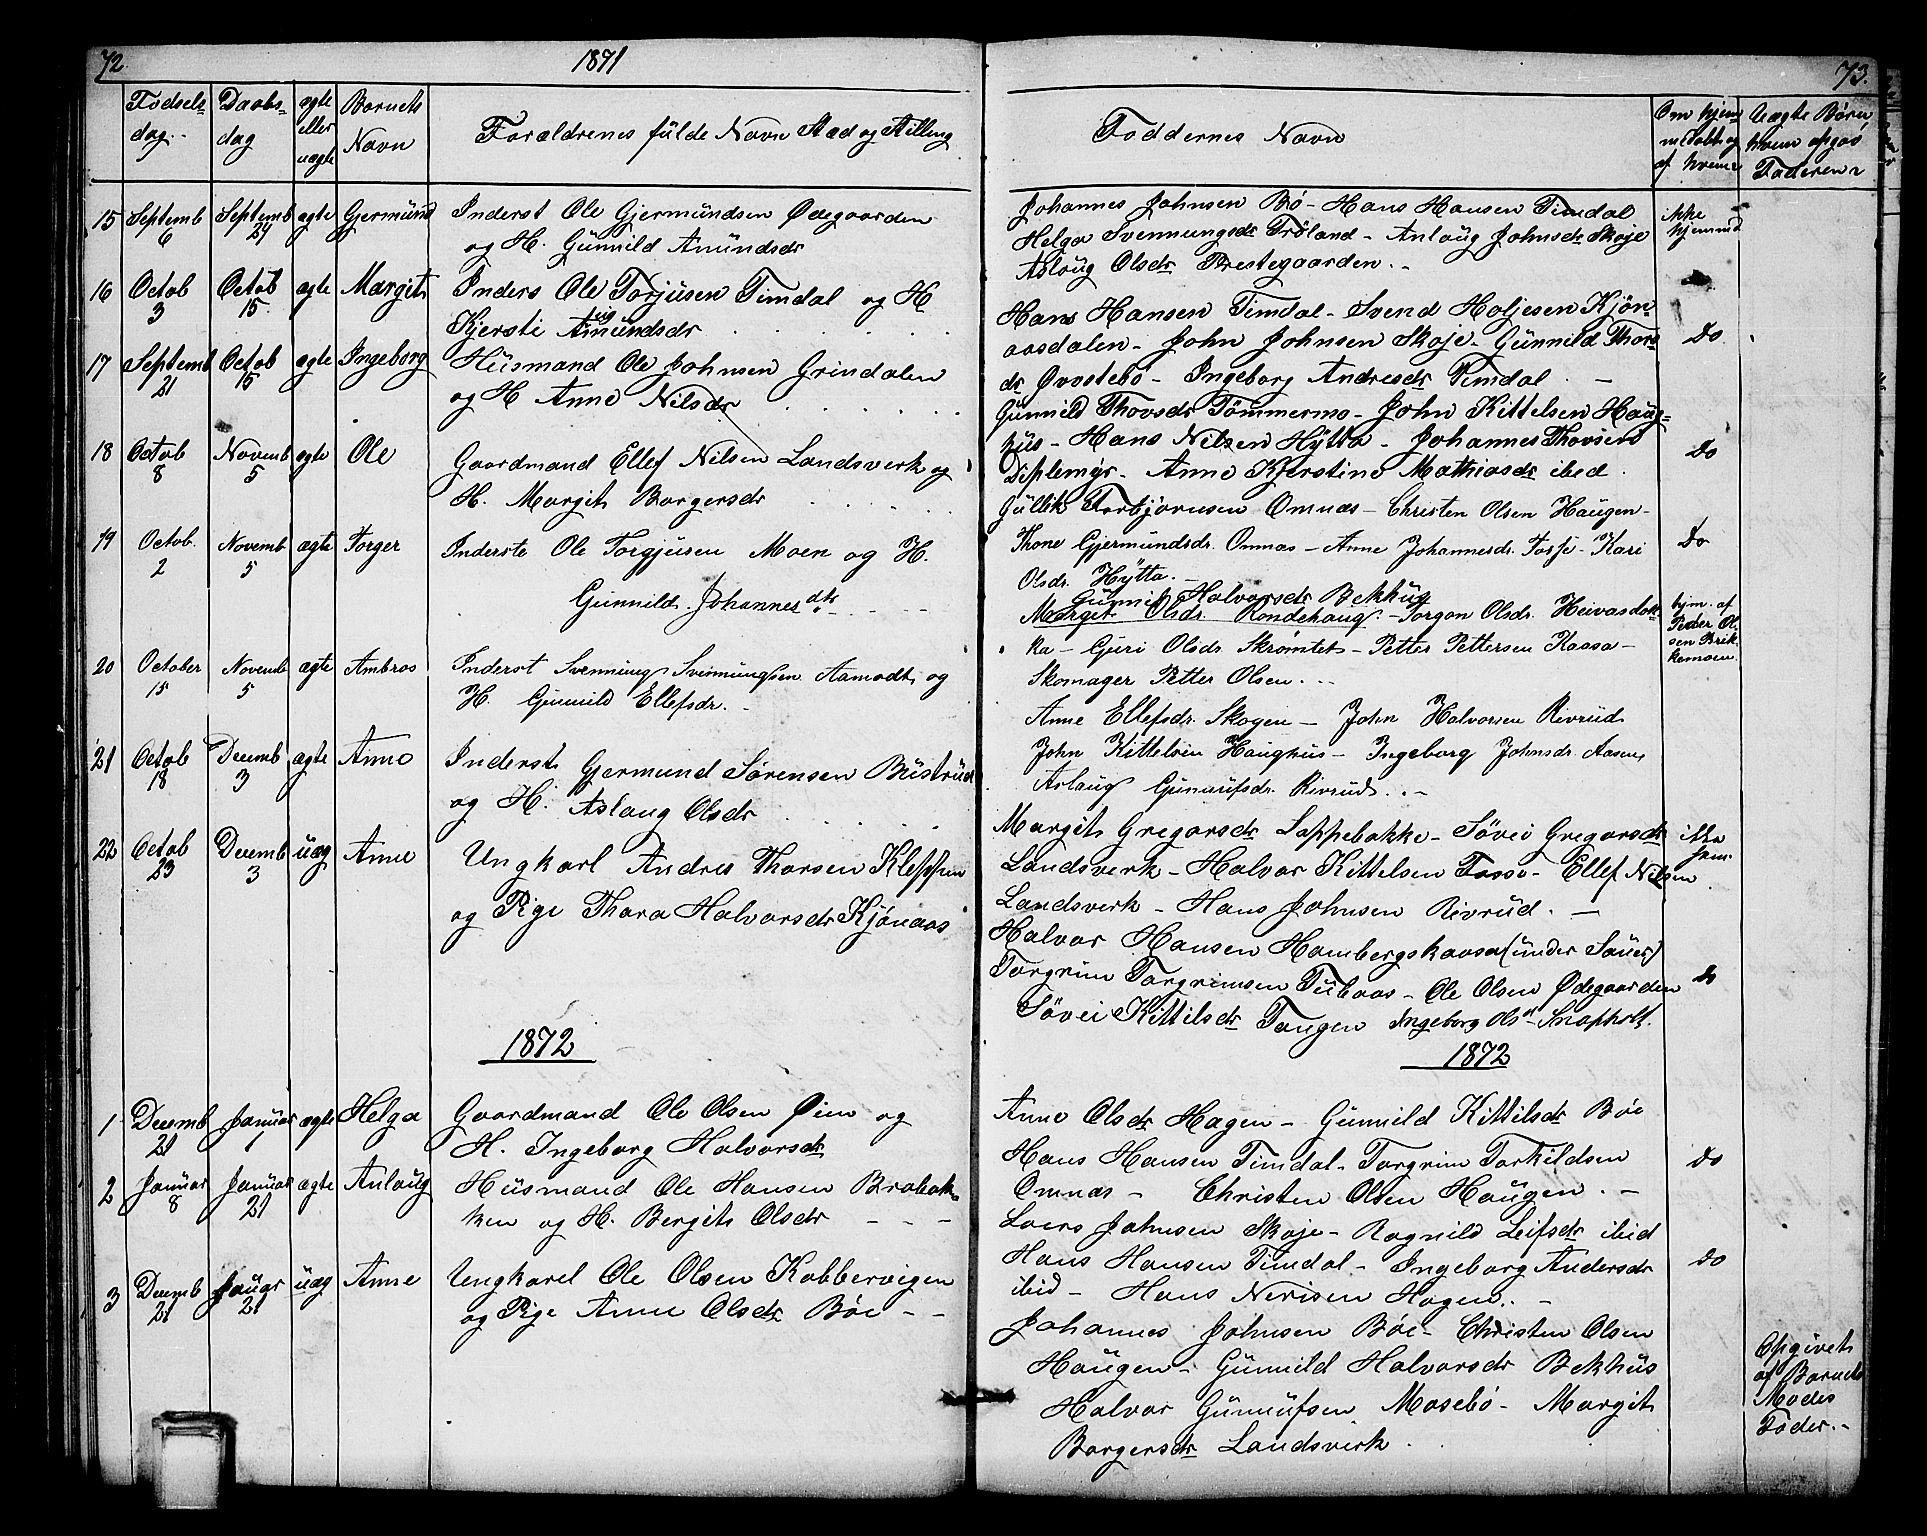 72. 1871
Fødsels- dag. Daabs- dag ægte eller uægte Barnets Navn Forældrenes fulde Navn Stad og Stilling
15 Septemb 6 Septemb 24 ægte Gjermund Inderst Ole Gjermundsen Ødegaarden
og H. Gunnild Amundsdr
16 Octob 3 Octob 15. ægte Margit Inders Ole Torjusen Timdal og H
Kjersti Amundsdr
17 Septemb 21 Octob 15 ægte Ingeborg Husmand Ole Johnsen Grindalen
og H Anne Nilsdr
18 Octob 8 Novemb 5 ægte Ole Gaardmand Ellef Nilsen Landsverk og
H. Margit Borgersdr
19 Octob. 2 Novemb 5 ægte Torger Inderste Ole Torgjusen Moen og H.
Gunnild Johannesdtr
20 October 15 Novemb 5 ægte Ambros Inderst Svennung Svennungsen Aamodt og
H. Gunnild Ellefsdr. -
21 Octob 18 Decemb 3 ægte Anne Inderst Gjermund Sørensen Bustrud
og H. Aslaug Olsdr
22 Octob 23 Decemb 3 uæg Anne Ungkarl Andres Thorsen Kleppen
og Pige Thora Halvorsdr Kjønaas
1872
1 Decemb 21 Januar 1 ægte Helga Gaardmand Ole Olsen Øien og
H. Ingeborg Halvorsdr
2 Januar 8 Januar 21 ægte Anlaug Husmand Ole Hansen Brabak-
ken og H. Bergit Olsdr - - -
3 Decemb 21 Januar 21 uæg Anne Ungkarl Ole Olsen Kobbervigen
og Pige Anne Olsdr Bøe - -
73.
Faddernes Navn Om hjem- medøbt og af hvem Uægte Børn, hvem opgas Faderen
Johannes Johnsen Bø - Hans Hansen Timdal ikke
Helga Svennungsdr Trøland - Anlaug Johnsdr Skoje hjemmd
Aslaug Olsdr Prestegaarden. -
Hans Hansen Timdal - Svend Holjesen Kjøn-
aasdalen - John Johnsen Skoje - Gunnild Thors Do
dr Øvostebø - Ingeborg Andresdr Timdal. -
Gunnild Thovsdr Tömmermo - John Kittelsen Haug-
hus - Hans Nilsen Hytta - Johannes Thovsen Do
Diplemyr - Anne Kjerstine Mathiasdr ibid.
Gullik Torbjørnsen Omnæs - Christen Olsen Haugen -
Thone Gjermundsdr. Omnæs - Anne Johannesdr. Fosse - Kari Do
Olsdr. Hytta. -
Gunnild Halvorsdr Bekhus
Margit Olsdr. Rondehaug. - Torgon Olsdr. Heivasdok- hjm. af
ka - Guri Olsdr Skrømtet - Petter Pettersen Kaasa - Peder Ol-
Skomager Petter Olsen. - - sen Brik-
kemoen.
Anne Ellefsdr. Skogen - John Halvorsen Rivrud
John Kittelsen Haughus - Ingeborg Johnsdr. Aasen
Aslaug Gunnufsdr. Rivrud. - -
Margit Gregorsdr Lappebakke - Sövei Gregorsdr ikke
Landsverk - Halvor Kittelsen Fosse - Ellef Nilsen hjem.
Landsverk - Hans Johnsen Rivrud. -
Halvor Hansen Hambergskaasa (under Sauer)
Torgrim Torgrimsen Tubaas - Ole Olsen Ødegaarden do
Sövei Kittilsdr Tangen Ingeborg Olsdr Snapholt.
1872
Anne Olsdr Hagen - Gunnild Kittilsdr Bøe
Hans Hansen Timdal - Torgrim Torkildsen do
Omnæs - Christen Olsen Haugen. -
Laers Johnsen Skoje - Ragnild Leifsdr ibid
Hans Hansen Timdal - Ingeborg Andersdr do
ibid - Hans Nerisen Hagen. -
Johannes Johnsen Bøe - Christen Olsen Opgivet
Haugen - Gunnild Halvorsdr Bekhus af Barnets
Halvor Gunnufsen Mosebø - Margit Modes
Borgersdr Landsverk. Fader. -